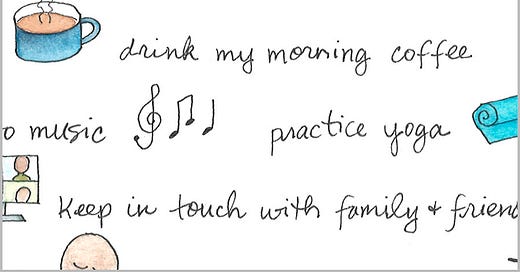 drink my morning coffee
o music practice yoga
Keep in touch with family & frien